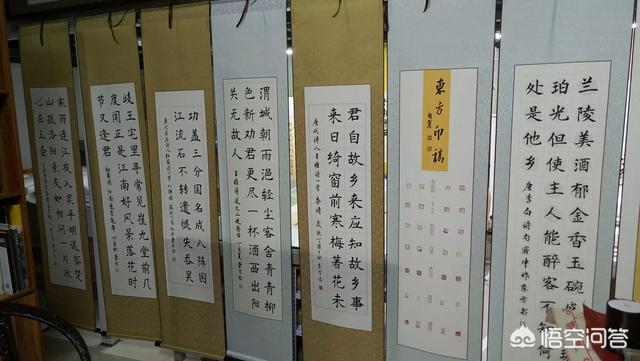 寒雨连江夜入吴平明送客楚
山孤洛阳亲友如相问一片冰
心在玉壶
岐王宅里寻常见崔九堂前几
度闻正是江南好风景落花时
节又逢君
功盖三分国名成八阵图
江流石不转遗恨失吞吴
渭城朝雨浥轻尘客舍青青柳
色新劝君更尽一杯酒西出阳
关无故人
君自故乡来应知故乡事
来日绮窗前寒梅著花未
唐代诗人王维诗一首杂诗
東方印稿
兰陵美酒郁金香玉碗盛
珀光但使主人能醉客不知何
处是他乡
唐李白诗句客中作东方书
悟空问答